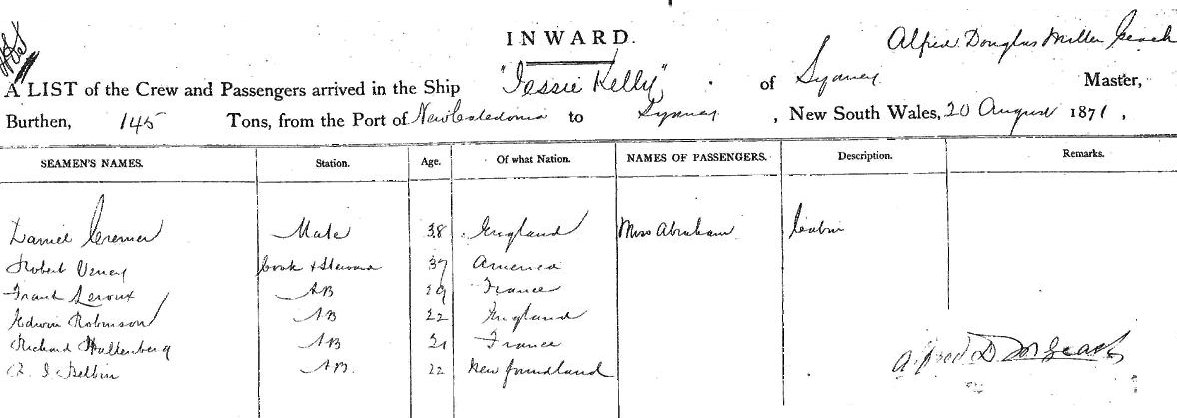 INWARD.
Alfred Douglas Miller Geach
A LIST of the Crew and Passengers arrived in the Ship "Jessie Kelly" of Sydney Master,
Burthen, 145 Tons, from the Port of New Caledonia to Sydney, New South Wales, 20 August 1871,
SEAMEN'S NAMES. Station. Age. Of what Nation. NAMES OF PASSENGERS. Description. Remarks.
Daniel Cremer Mate 38 England Miss Abraham Cabin
Robert Cook & Steward 37 America
Frank Leroux AB 29 France
Edwin Robinson AB 22 England
Richard AB 21 France
AB 22 New foundland
Alfred D M Geach